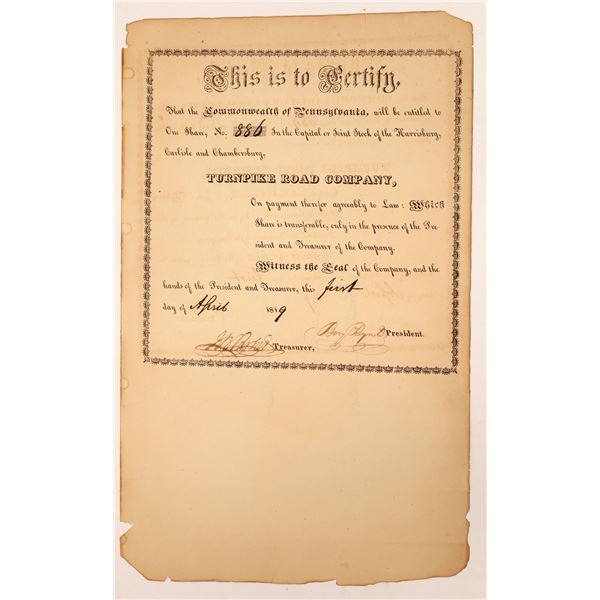 This is to Certify,
That the Commonwealth of Pennsylvania, will be entitled to
One Share, No. 886 In the Capital or Joint Stock of the Harrisburg,
Carlisle and Chambersburg,
TURNPIKE ROAD COMPANY,
On payment therefor agreeably to Law: Which
Share is transferable, only in the presence of the Pre-
sident and Treasurer of the Company.
Witness the Seal of the Company, and the
hands of the President and Treasurer, this first
day of April 1819
President.
Treasurer,